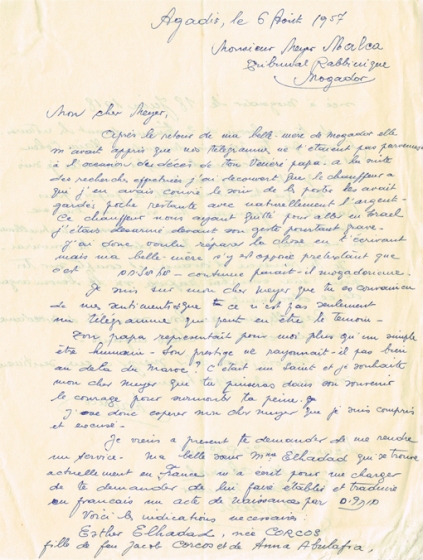 Agadir, le 6 Août 1957
Monsieur Meyer Malca
Tribunal Rabbinique
Mogador
Mon cher Meyer,
Après le retour de ma belle-mère de mogador elle
m'avait appris que mes télégrammes ne t'étaient pas parvenus
à l'occasion des décès de ton Vénéré papa. a la suite
des recherches effectuées j'ai découvert que le chauffeur a
qui j'en avais confié le soin de la poste les avait
gardés poche restante avec naturellement l'argent-
Ce chauffeur nous ayant quitté pour aller en Israel
j'étais désarmé devant son geste pourtant grave-
j'ai donc voulu réparer la chose en t'écrivant
mais ma belle-mère s'y est opposée prétextant que
c'est - coutume parait-il mogadorienne-
Je suis sur mon cher Meyer que tu es convaincu
de mes sentiments et que ce n'est pas seulement
un télégramme qui peut en être le temoin-
Ton papa représentait pour moi plus qu'un simple
être humain- Son prestige ne rayonnait-il pas bien
au delà du Maroc? C'était un Saint et je souhaite
mon cher meyer que tu puiseras dans son souvenir
le courage pour surmonter ta peine.
J'ose donc espérer mon cher meyer que je suis compris
et excusé-
Je viens a présent te demander de me rendre
un service- Ma belle sœur Mme Elhadad qui se trouve
actuellement en France m'a écrit pour me charger
de te demander de lui faire établir et traduire
en français un acte de naissance par
Voici les indications necessaires:
Esther Elhadad, née CORCOS
fille de feu Jacob Corcos et de Anna Abulafia